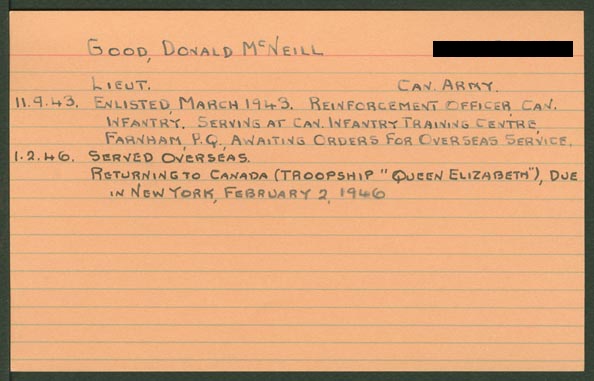 GOOD, DONALD McNEILL
LIEUT. CAN. ARMY.
11.9.43. ENLISTED, MARCH 1943. REINFORCEMENT OFFICER, CAN.
INFANTRY. SERVING AT CAN. INFANTRY TRAINING CENTRE,
FARNHAM, P.Q., AWAITING ORDERS FOR OVERSEAS SERVICE.
1.2.46. SERVED OVERSEAS.
RETURNING TO CANADA (TROOPSHIP "QUEEN ELIZABETH"), DUE
IN NEW YORK, FEBRUARY 2, 1946